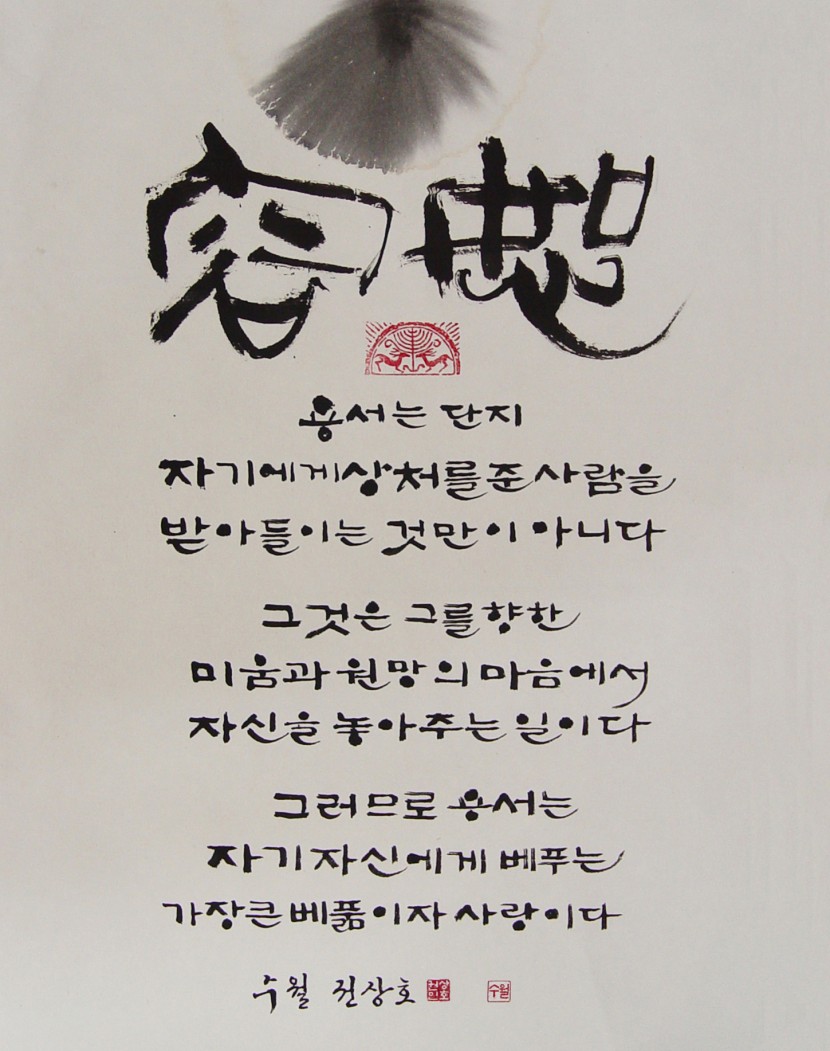 容恕
용서는 단지
자기에게상처를준사람을
받아들이는 것만이 아니다
그것은 그를향한
미움과 원망의 마음에서
자신을 놓아주는 일이다
그러므로 용서는
자기자신에게 베푸는
가장큰베풂이자 사랑이다
수월 전상호
수월